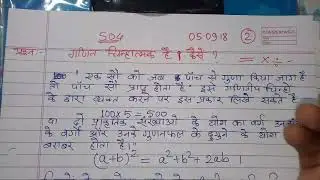 504
05-09-18
②
CLASSMATE
प्रश्न:- गणित चिन्हात्मक है। कैसे ?
= × ÷ -
100 "एक सौ को जब पाँच से गुणा किया जाता है
तो पाँच सौ प्राप्त होता है" इसे गणितीय चिन्हों
के द्वारा व्यक्त करने पर इस प्रकार लिख सकते हैं
100×5 = 500
या दो प्राकृतिक संख्याओं के योग का वर्ग उनके
के वर्गों और उनके गुणनफल के दुगुने के योग
बराबर होता है।"
(a+b)² = a²+b²+2ab ।